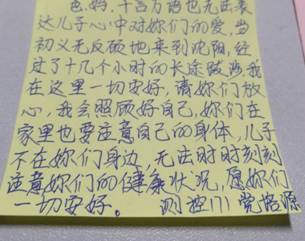 爸妈,千言万语也无法表
达儿子心中对妳们的爱,当
初义无反顾地来到沈阳,经
过了十几个小时的长途跋涉,我
在这里一切安好,请妳们放
心,我会照顾好自己,妳们在
家里也要注意自己的身体,儿子
不在妳们身边,无法时时刻刻
注意妳们的健康状况,愿妳们
一切安好。 测控1701 党培源